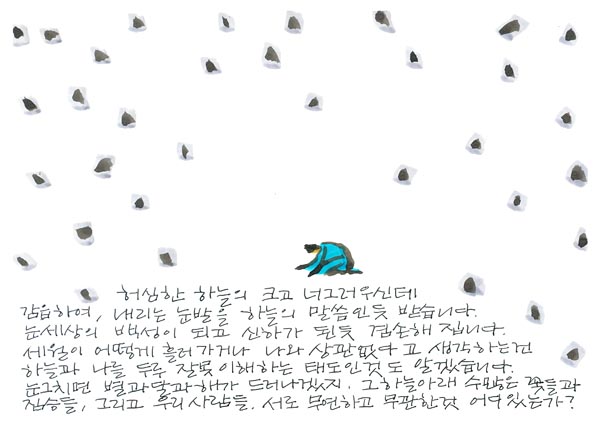 허심한 하늘의 크고 너그러우신데
감읍하여, 내리는 눈발을 하늘의 말씀인듯 받습니다.
눈세상의 백성이 되고 신하가 된듯 겸손해 집니다.
세월이 어떻게 흘러가거나 나와 상관없다고 생각하는건
하늘과 나를 두루 잘못 이해하는 태도인것도 알겠습니다.
눈그치면 별과 달과 해가 드러나겠지. 그하늘아래 수많은 꽃들과
짐승들, 그리고 우리 사람들. 서로 무연하고 무관한것 어디있는가?